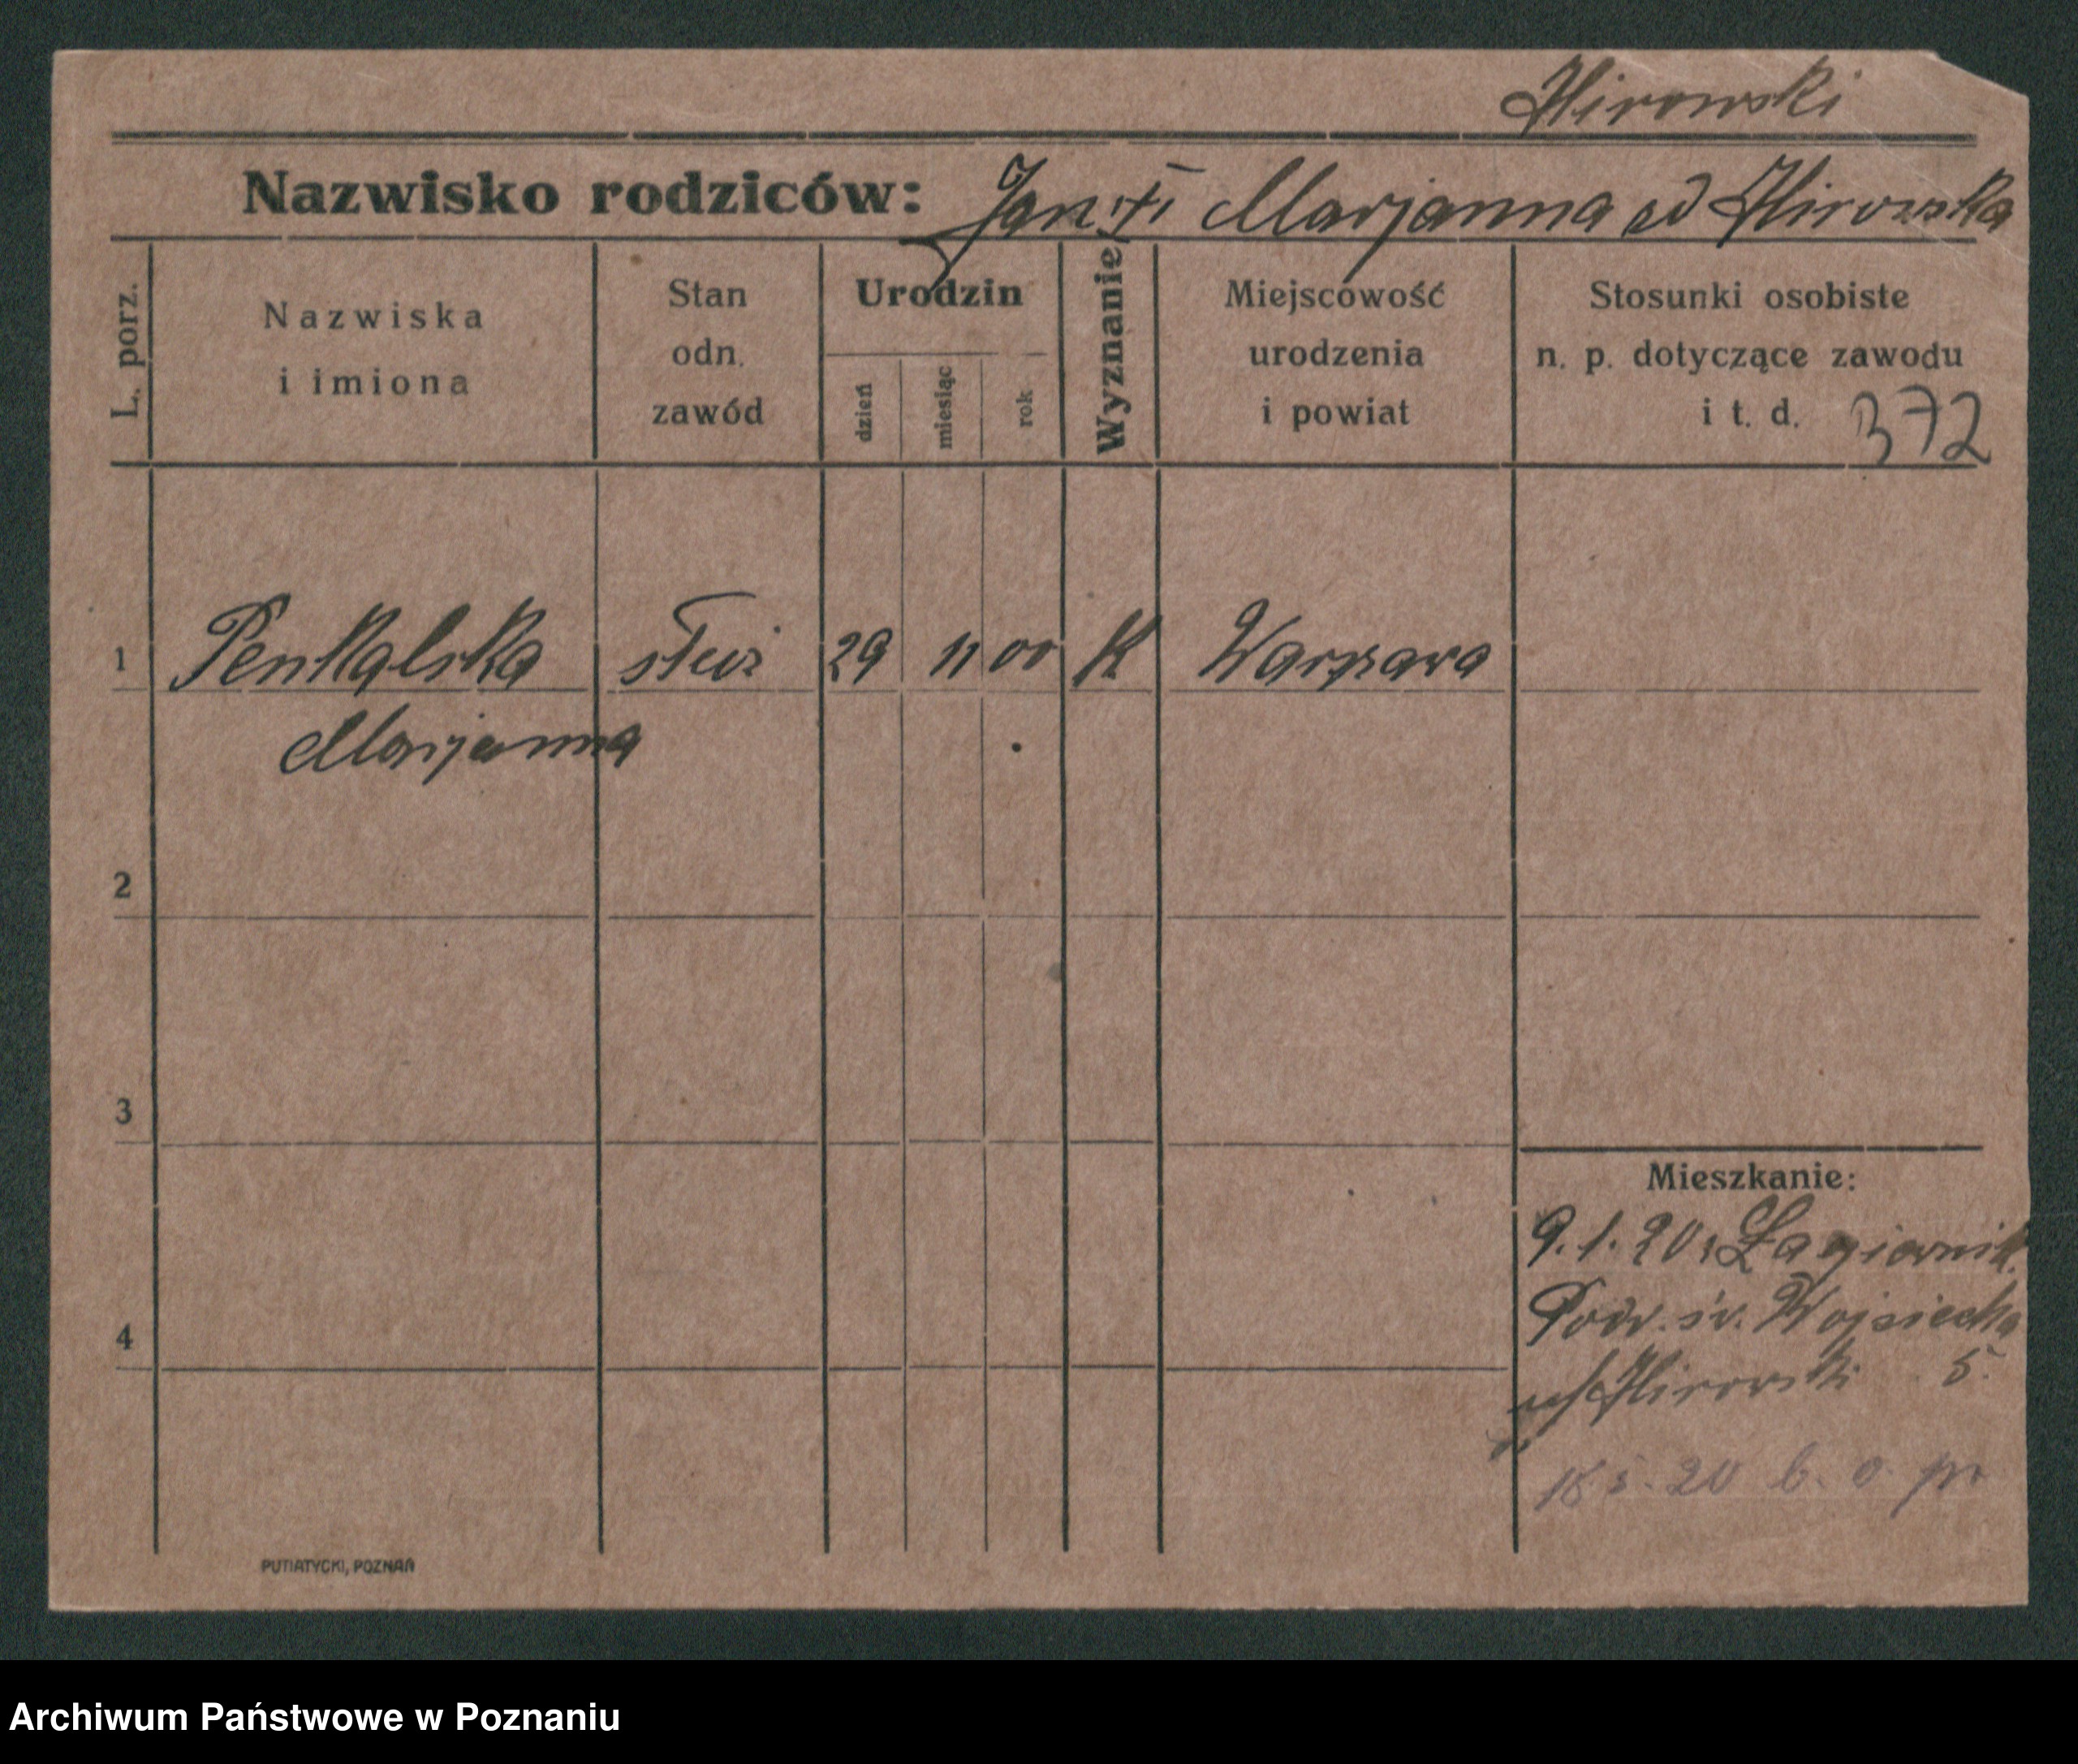 Hirowski
Nazwisko rodziców: Jan i Marjanna Hirowska
L. porz.
Nazwiska i imiona
Stan odn. zawód
Urodzin
dzień miesiąc rok
Wyznanie
Miejscowość urodzenia i powiat
Stosunki osobiste n. p. dotyczące zawodu i t. d. 372
1 Penkalska służ 29 11 00 K Warszawa
Marjanna
2
3
Mieszkanie:
9.1.20
św. Wojciecha
4
Hirowski 5.
20 b. o.
PUTIATYCKI, POZNAŃ
Archiwum Państwowe w Poznaniu